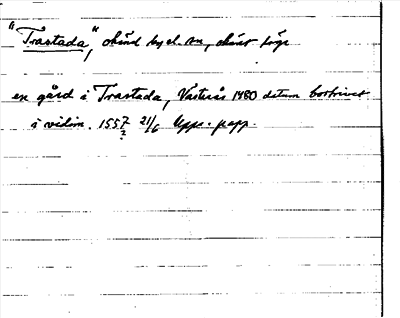 "Trastada," okänd by el. sn, okänt läge
en gård i Trastada, Västerås 1480 datum bortrivet
i vidim. 1557 21/6 Upps. papp.
?